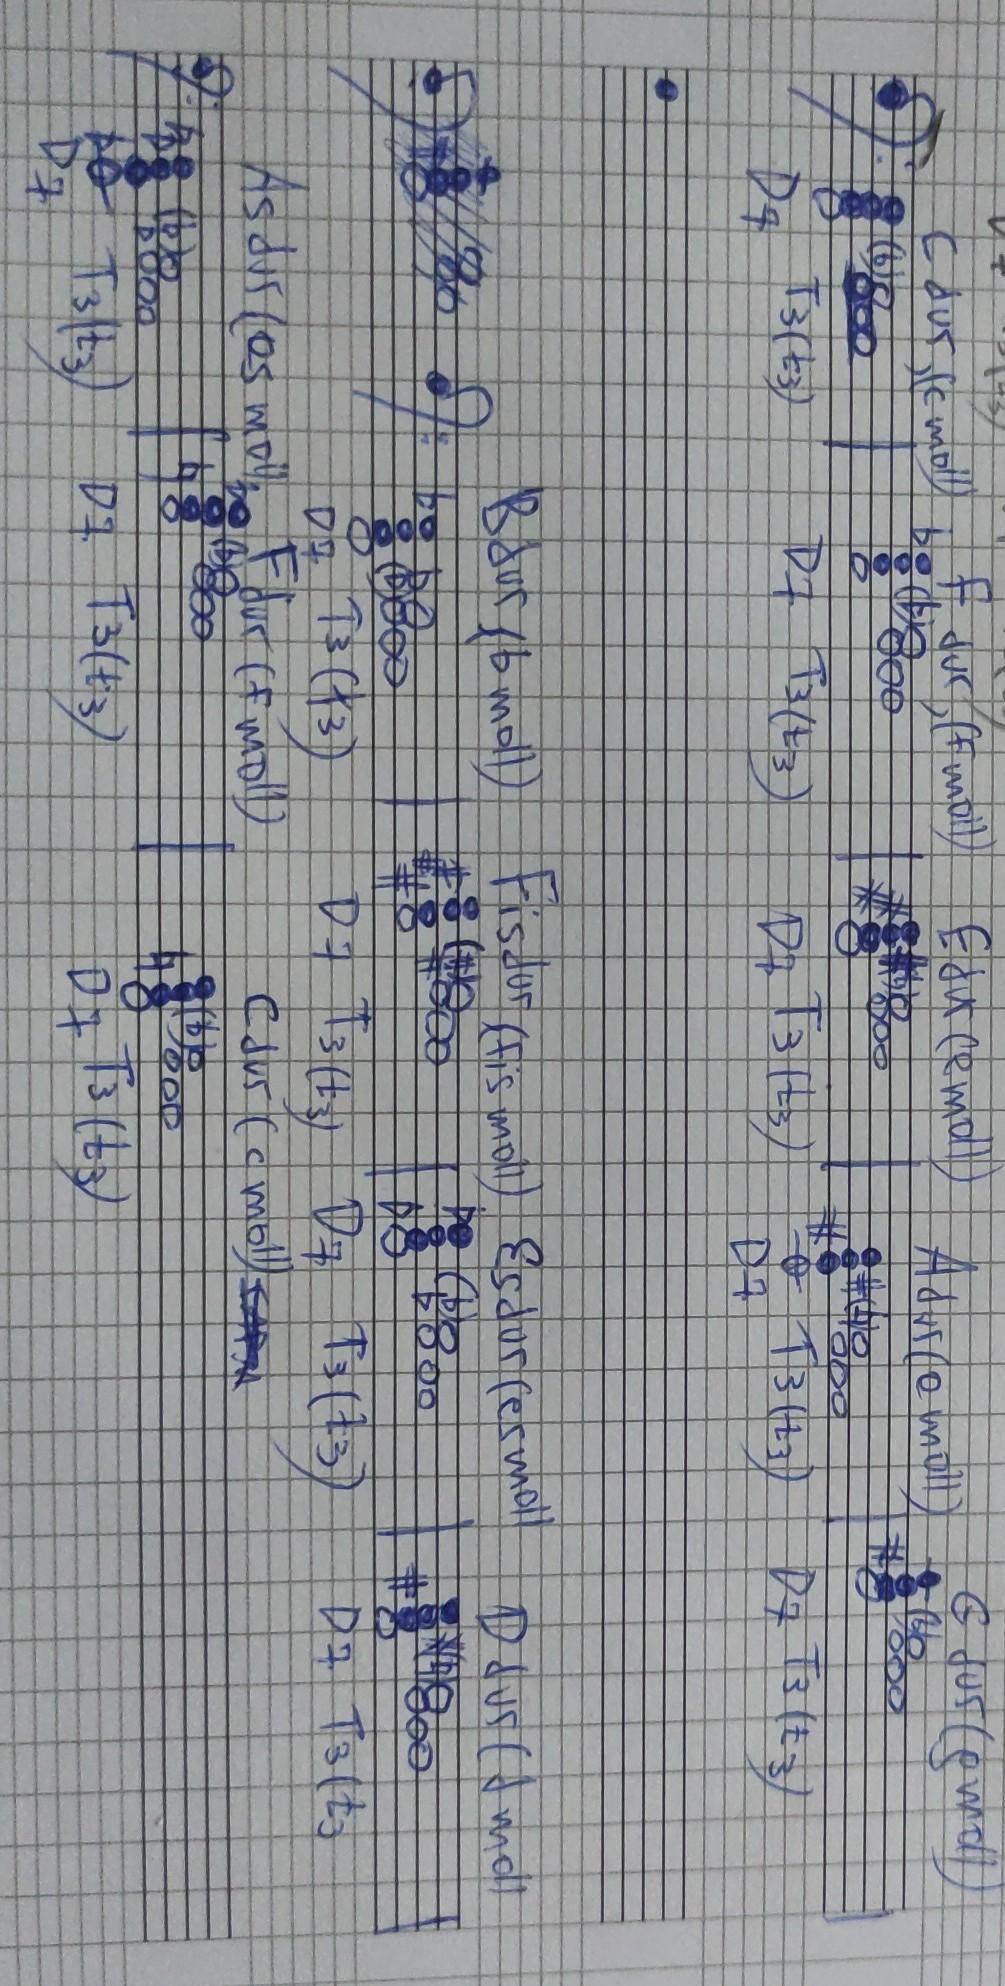 C dur, (c moll) F dur, (f moll) E dur (e moll) A dur (a moll) G dur (g moll)
D7 T3(t3) D7 T3(t3) D7 T3(t3) D7 T3(t3) D7 T3(t3)
B dur (b moll) Fis dur (fis moll) Es dur (es moll D dur (d moll
D7 T3(t3) D7 T3(t3) D7 T3(t3) D7 T3(t3
As dur (as moll, F dur (f moll) C dur (c moll)
D7 T3(t3) D7 T3(t3) D7 T3(t3)